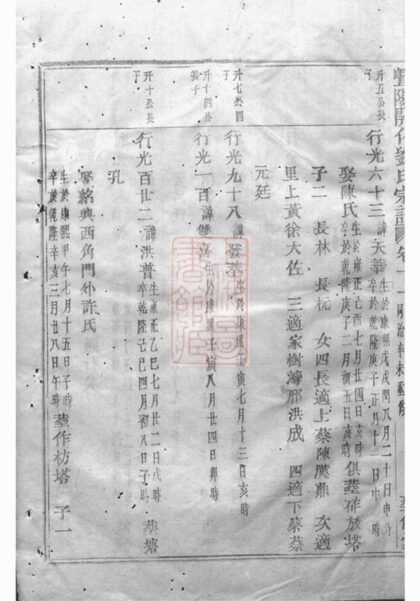 暨陽開化劉氏宗譜 卷一
升五公長子 行光六十三 諱天華 生於康熙戊戌閏八月二十日申時 卒於乾隆庚子正月十二日申時
娶陳氏 生於雍正己酉七月廿四日亥時 卒於乾隆庚子二月初五日亥時 俱塟碓放塔
子二 長林 長杬 女四 長適上蔡陳 鼎 次適
里上黃徐大佐 三適家樹灣邢洪成 四適下蔡蔡
元廷
升七公四子 行光九十八 諱 生於康熙壬寅七月十三日亥時
升十四公長子 行光一百 諱 生於康熙壬寅八月廿四日卯時
升十公長子 行光百廿二 諱洪普 生雍正乙巳七月廿二日戌時 卒乾隆己巳四月初八日子時 塟塘
孔
娶紹興西角門外許氏
生於康熙甲午七月十五日子時 卒於乾隆辛亥三月廿八日午時 塟作枋塔 子一